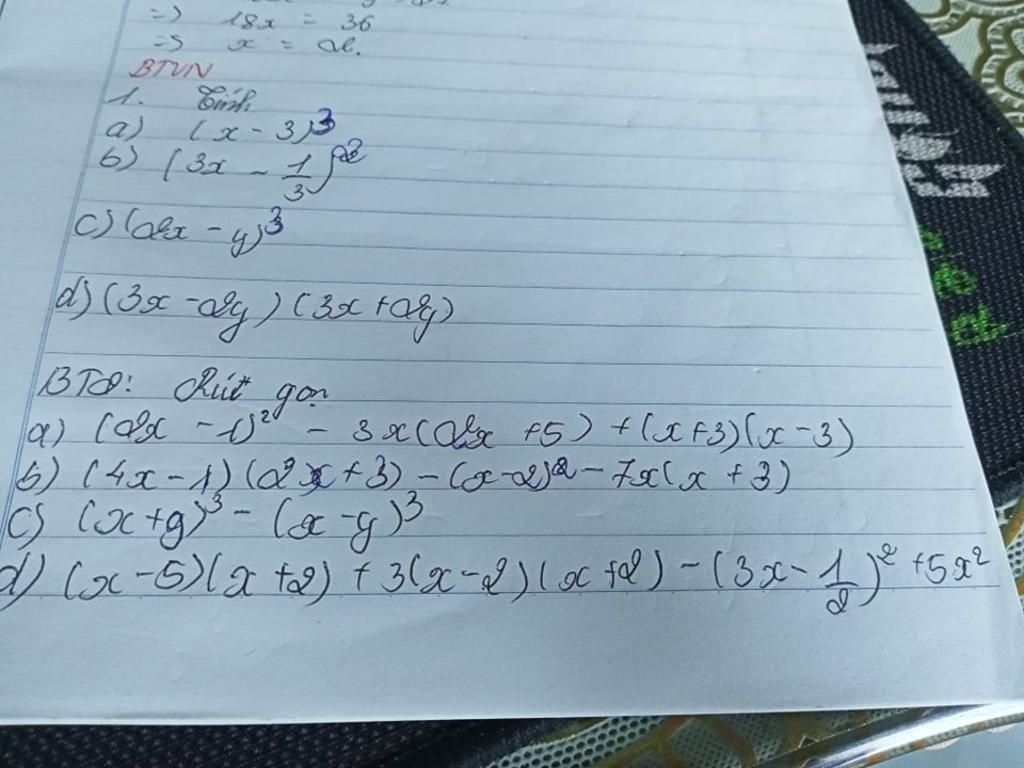 => 18x = 36
=> x = 2.
BTVN
1. Tính
a) (x - 3)³
b) (3x - 1/3)²
c) (2x - y)³
d) (3x - 2y) (3x + 2y)
BT2: Rút gọn
a) (2x - 1)² - 3x(2x + 5) + (x+3)(x-3)
b) (4x - 1) (2x + 3) - (x-2)² - 7x(x + 3)
c) (x+y)³ - (x-y)³
d) (x-5)(x+2) + 3(x-2)(x+2) - (3x - 1/2)² + 5x²